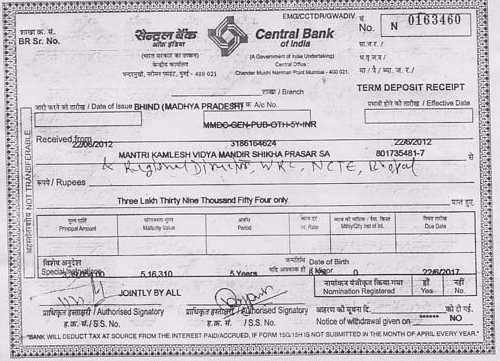 EMG/CCTDR/GWADIV
शाखा क्र. सं.
BR Sr. No.
सेन्ट्रल बैंक
ऑफ इंडिया
(भारत सरकार का उपक्रम)
केन्द्रीय कार्यालय
चन्दरमुखी, नरीमन प्वाइंट, मुंबई - 400 021
Central Bank
of India
(A Government of India Undertaking)
Central Office:
Chander Mukhi Nariman Point Mumbai - 400 021.
सं.
No. N 0163460
शाखा / Branch
TERM DEPOSIT RECEIPT
जारी करने की तारीख / Date of Issue BHIND (MADHYA PRADESH) A/c No.
प्रभावी होने की तारीख / Effective Date
MMDC-GEN-PUB-OTH-5Y-INR
Received from 22/06/2012 3186164624 22/6/2012
MANTRI KAMLESH VIDYA MANDIR SHIKHA PRASAR SA 801735481-7 से
& Regional Director, WRC, NCTE, Bhopal
रूपये / Rupees
Three Lakh Thirty Nine Thousand Fifty Four only. प्राप्त हुए.
अहस्तांतरणीय NOT TRANSFERABLE
मूल राशि
Principal Amount
परिपक्वता मूल्य
Maturity Value
अवधि
Period
Mthly/Qtly Inst of Int.
नियत तारीख
Due Date
विशेष अनुदेश
Special Instructions
जन्मतिथि Date of Birth
यदि अवयस्क हो if Minor
5,16,310 5 Years 0 22/6/2017
JOINTLY BY ALL
नामांकन पंजीकृत किया गया
Nomination Registered
हाँ
Yes
नहीं
No.
प्राधिकृत हस्ताक्षर / Authorised Signatory
ह.क्र. सं. / S.S. No.
प्राधिकृत हस्ताक्षर / Authorised Signatory
ह.क्र. सं. / S.S. No.
आहरण की सूचना दि. को दी गई.
Notice of withdrawal given on NO
"BANK WILL DEDUCT TAX AT SOURCE FROM THE INTEREST PAID/ACCRUED, IF FORM 15G/15H IS NOT SUBMITTED IN THE MONTH OF APRIL EVERY YEAR."